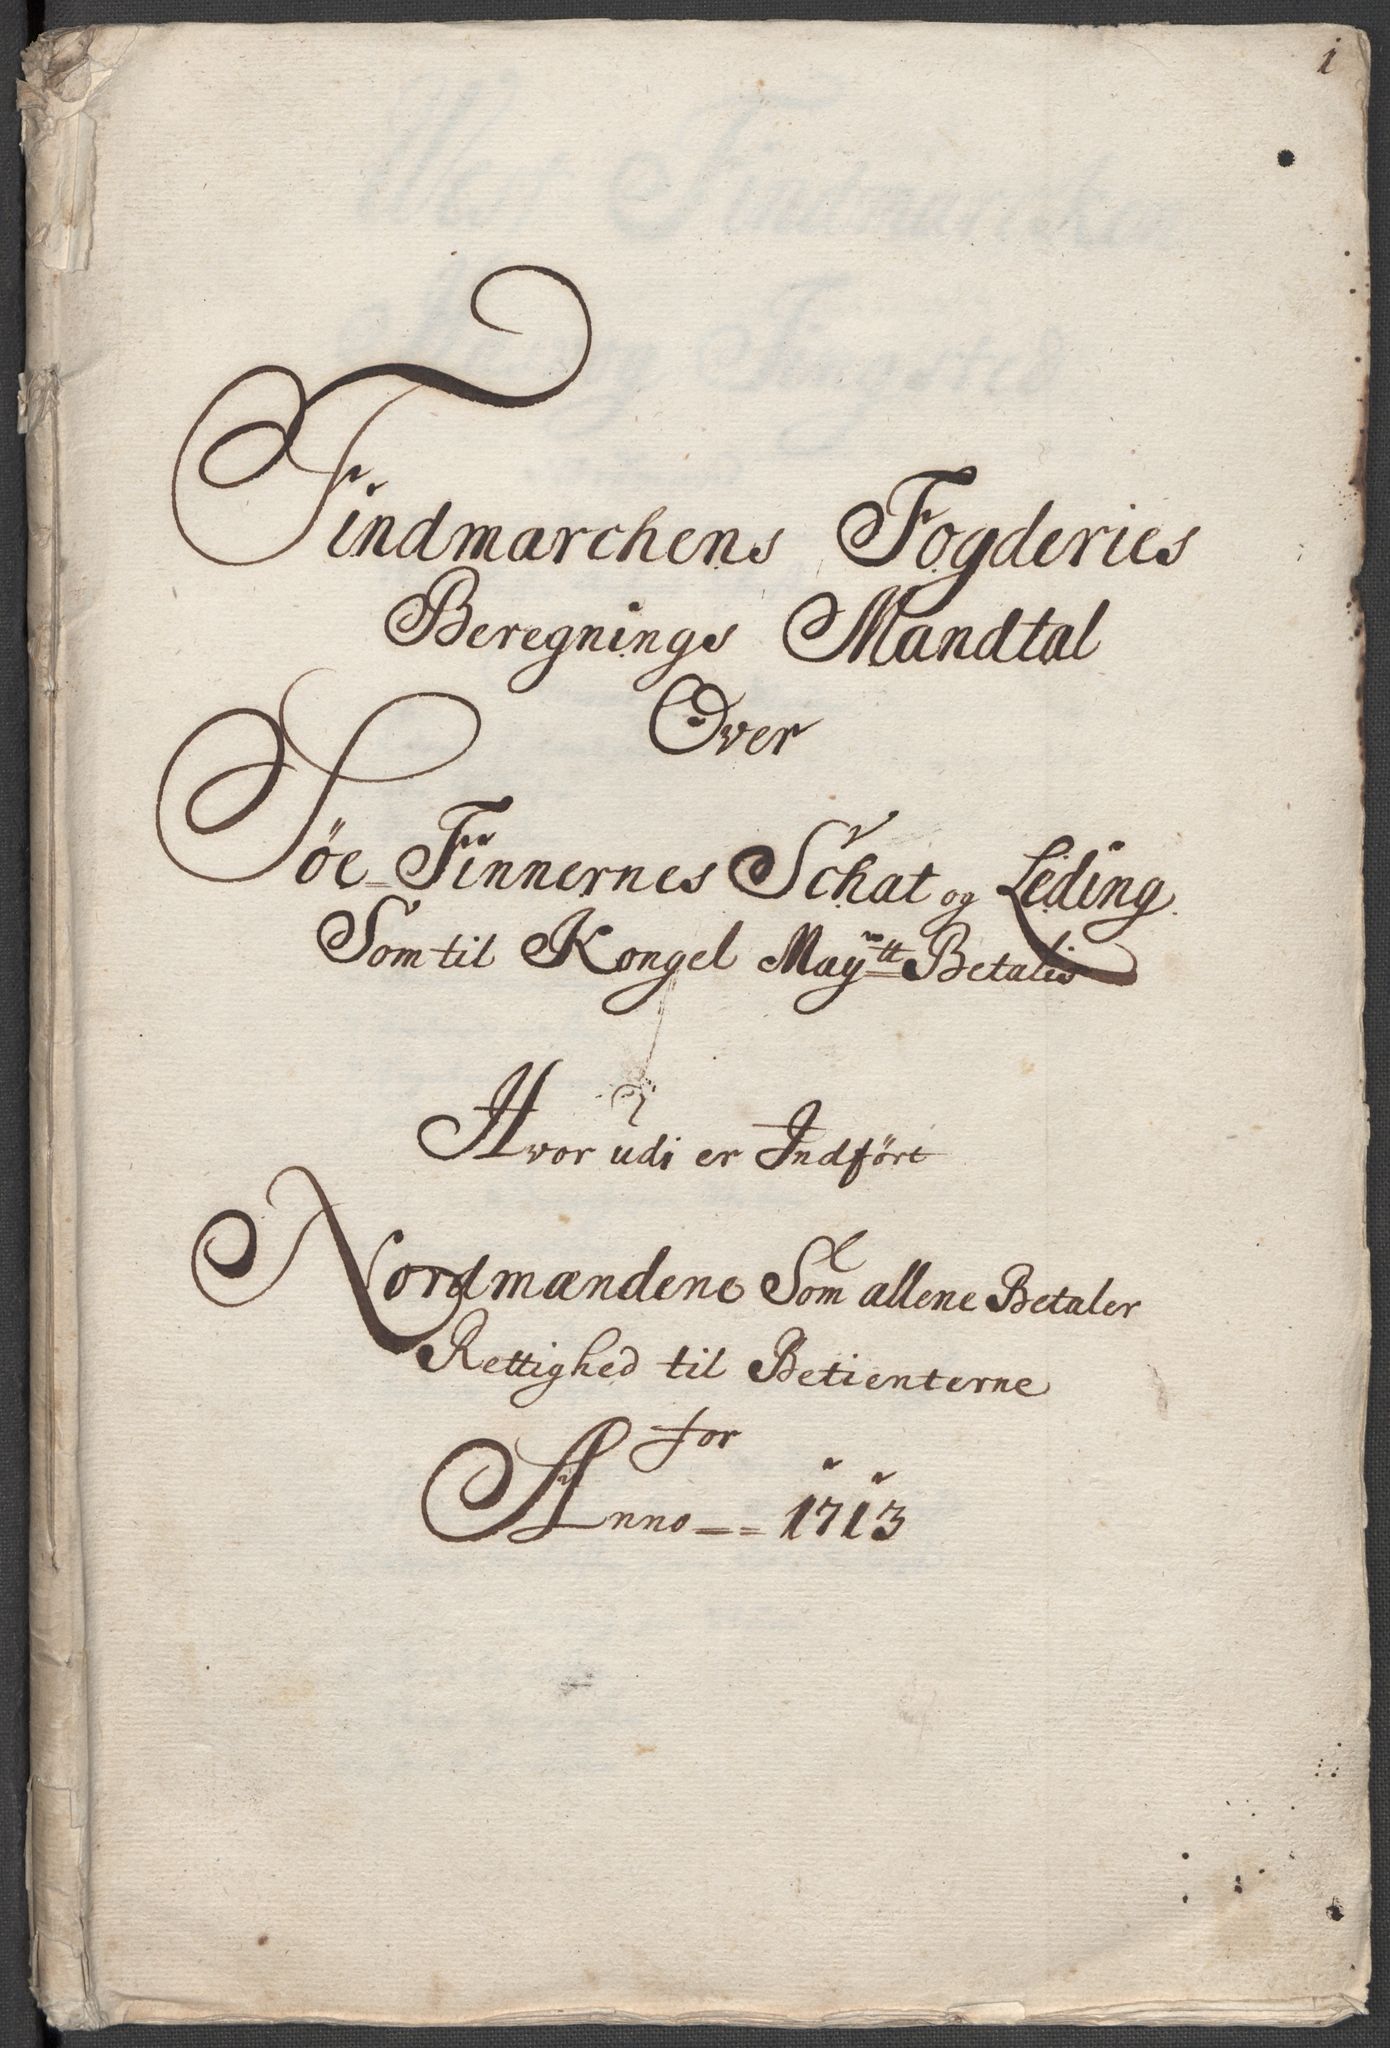 1
Findmarchens Fogderies
Beregnings Mandtal
Over
Söe-Finnernes Schat og Leding
Som til Kongel Maytt Betalis
Hvor udi er Indfört
Nordmændene Som allene Betaler
Rettighed til Betienterne
for
Anno -- 1713